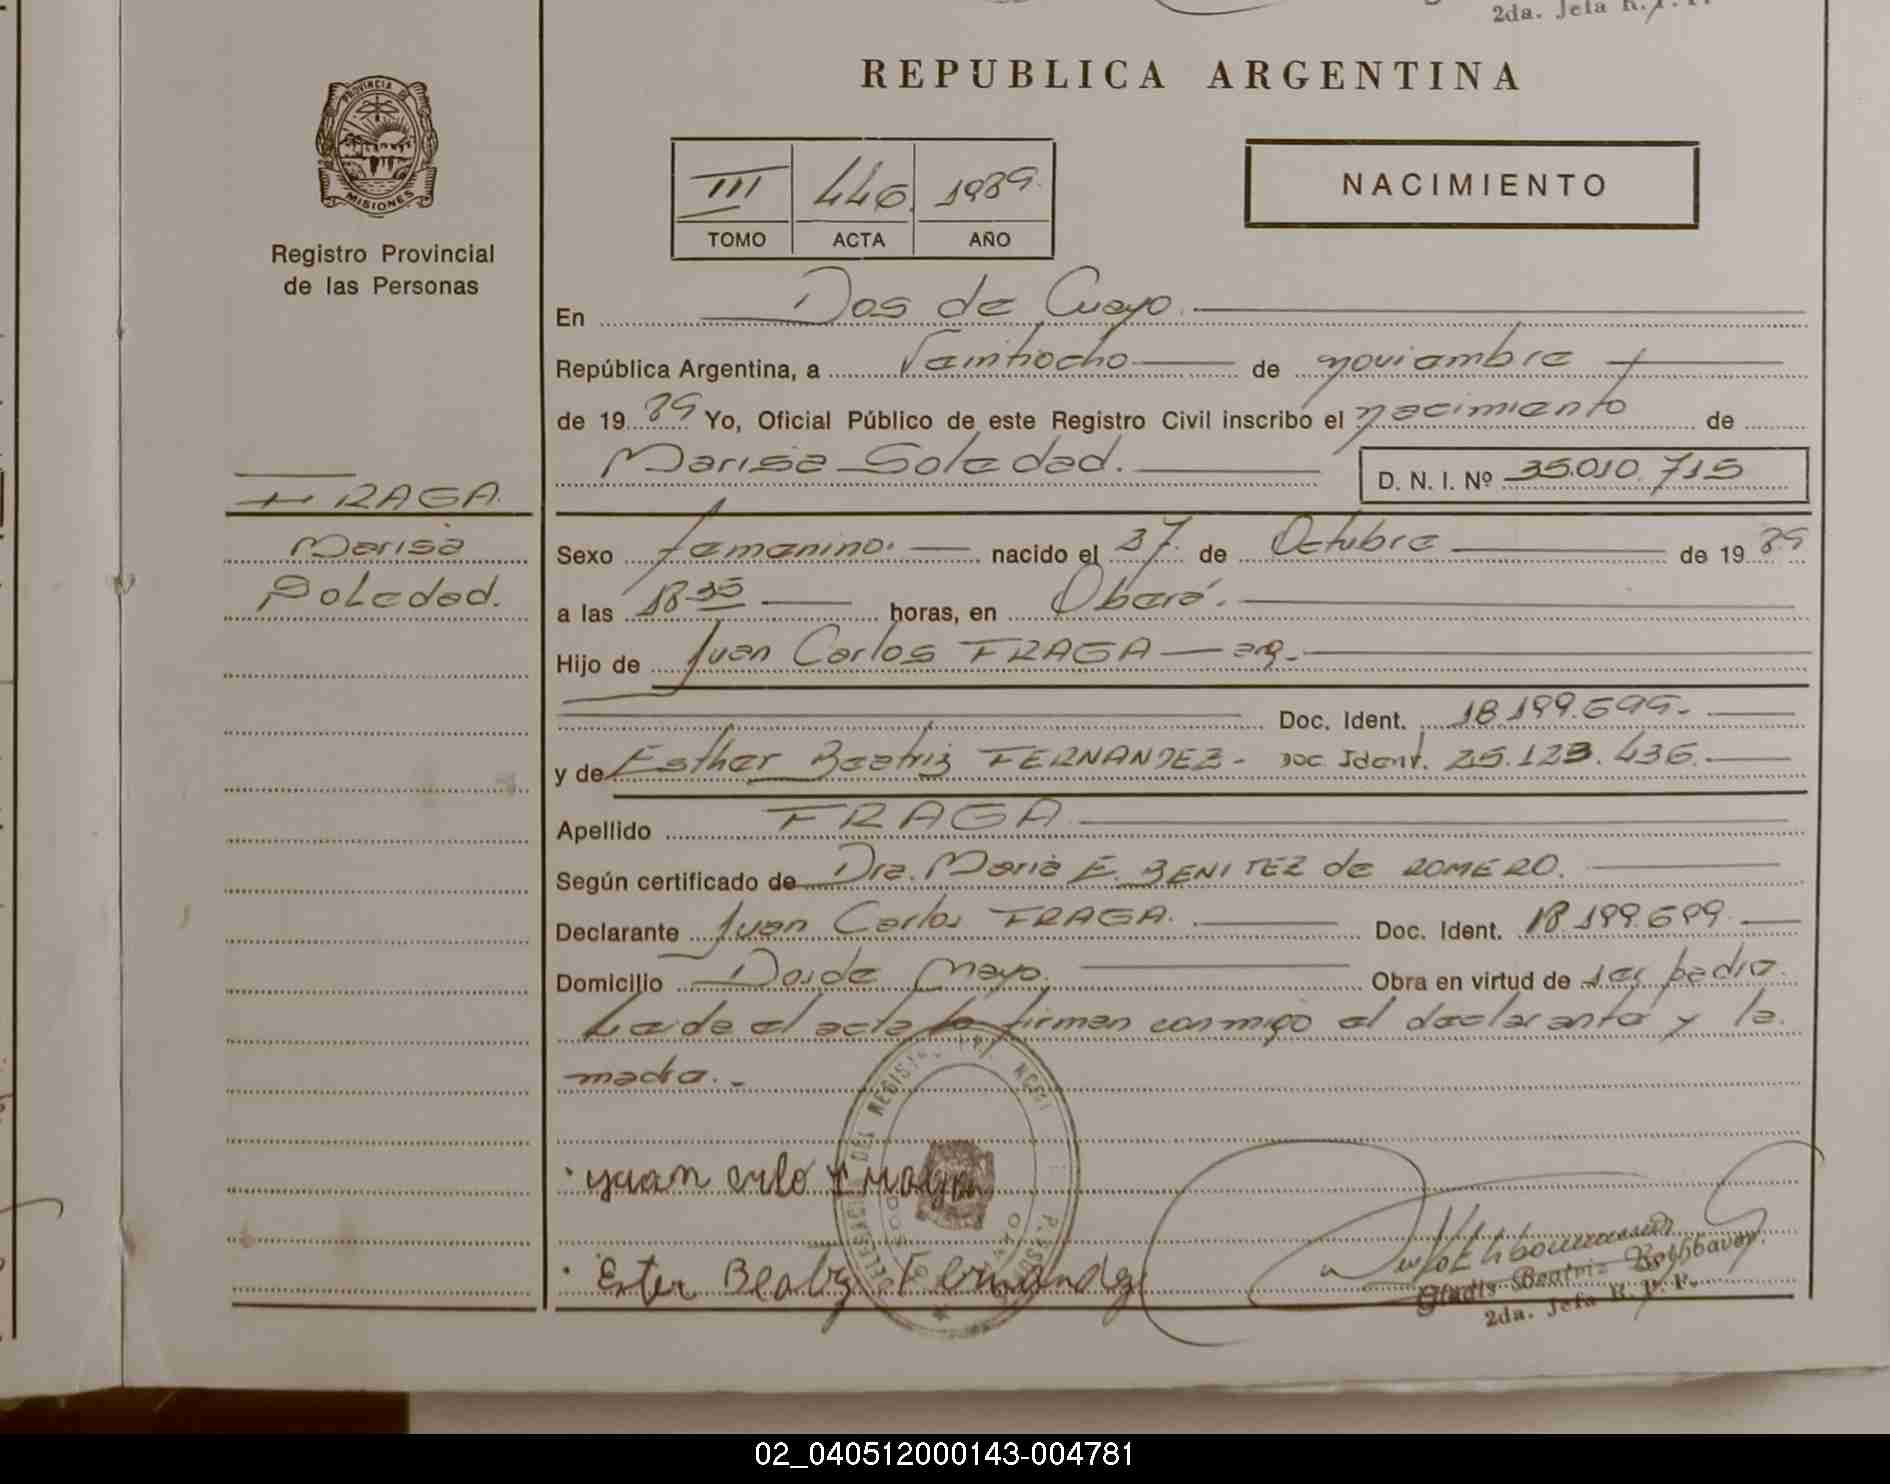 2da. Jefa R. P. P.
REPUBLICA ARGENTINA
PROVINCIA DE
MISIONES
Registro Provincial
de las Personas
III 446 1989
TOMO ACTA AÑO
NACIMIENTO
En Dos de Mayo
República Argentina, a Veintiocho de noviembre
de 1989 Yo, Oficial Público de este Registro Civil inscribo el nacimiento de
Marisa Soledad. D. N. I. Nº 35.010.715
FRAGA
Marisa
Soledad.
Sexo femenino. nacido el de Octubre de 1989
a las 18-35 horas, en Oberá.
Hijo de Juan Carlos FRAGA — arg.
Doc. Ident. 18.199.699.
y de Esther Beatriz FERNANDEZ - Doc Ident. 25.123.436.
Apellido FRAGA
Según certificado de Dra. Maria E. BENITEZ de ROMERO.
Declarante Juan Carlos FRAGA. Doc. Ident. 18.199.699
Domicilio Dos de Mayo. Obra en virtud de ser padre.
Leide el acta la firman conmigo el declarante y la
madre. -
Juan Fraga
Ester Beatriz Fernandez
Gladis Beatriz
2da. Jefa R. P. P.
02_040512000143-004781